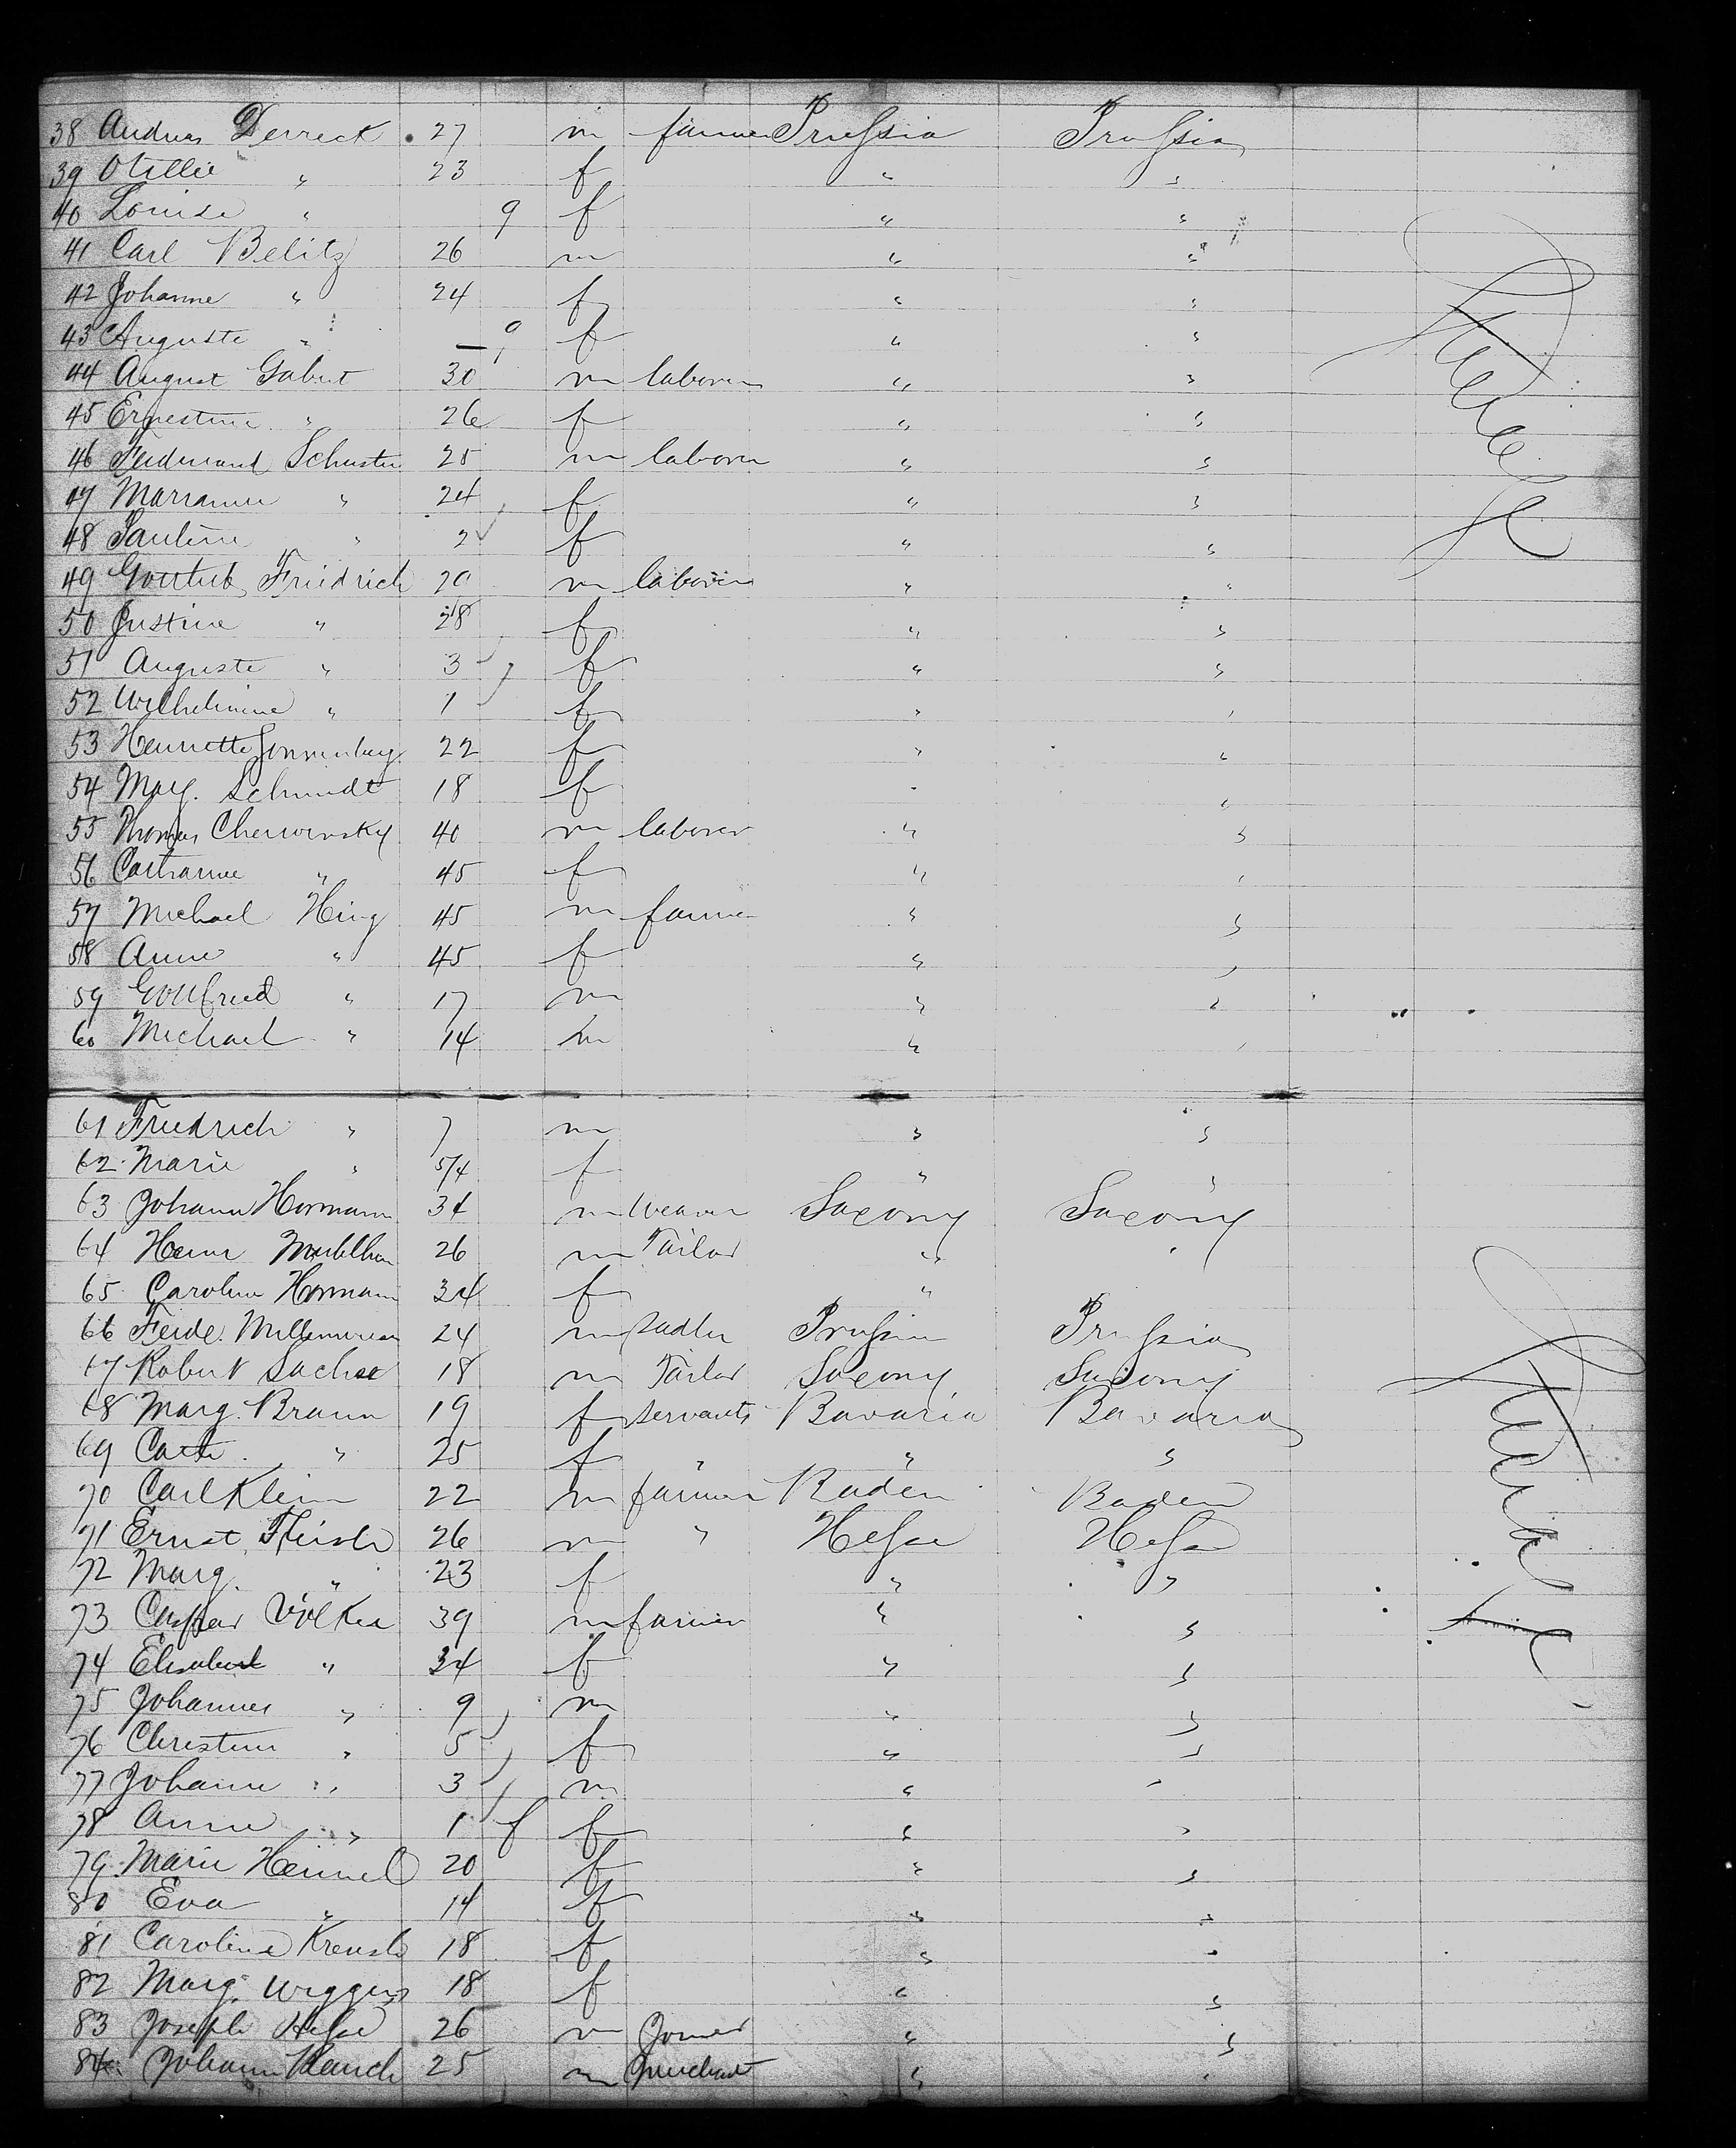 38 Andreas Derreck 27 m farmer Prussia Prussia
39 Otillie " 23 f " "
40 Louise " 9 f " "
41 Carl Belitz 26 m " "
42 Johanne " 24 f " "
43 Auguste " 9 f " "
44 August Gabert 30 m laborer " "
45 Ernestine " 26 f " "
46 Ferdinand Schuster 25 m laborer " "
47 Marianne " 24 f " "
48 Pauline " 2 f " "
49 Gottlieb Friedrich 29 m laborer " "
50 Justine " 28 f " "
51 Auguste " 3 f " "
52 Wilhelmine " 1 f " "
53 Henriette Sonnenberg 22 f " "
54 Marg. Schmidt 18 f " "
55 Thomas Cherwinsky 40 m laborer " "
56 Catharine " 45 f " "
57 Michael Hing 45 m farmer " "
58 Anne " 45 f " "
59 Gottfried " 17 m " "
60 Michael " 14 m " "
61 Friedrich " 7 m " "
62 Marie " 5/4 f " "
63 Johann Hormann 34 m weaver Saxony Saxony
64 26 m Tailor " "
65 Caroline Hormann 34 f "
66 Ferd. 24 m sadler Prussia Prussia
67 Robert Sachse 18 m Tailor Saxony Saxony
68 Marg. Braun 19 f servants Bavaria Bavaria
69 Cath. " 25 f " " "
70 Carl Klein 22 m farmer Baden Baden
71 Ernst 26 m " Hesse Hesse
72 Marg. " 23 f " "
73 Caspar Völker 39 m farmer " "
74 Elisabeth " 34 f " "
75 Johannes " 9 m " "
76 Christine " 5 f " "
77 Johann " 3 m " "
78 Anne " 1 f f " "
79 Marie Heimel 20 f " "
80 Eva " 14 f " "
81 Caroline 18 f " "
82 Marg. Wiggers 18 f " "
83 Joseph Hesse 26 m Joiner " "
84 Johann Rauch 25 m merchant " "